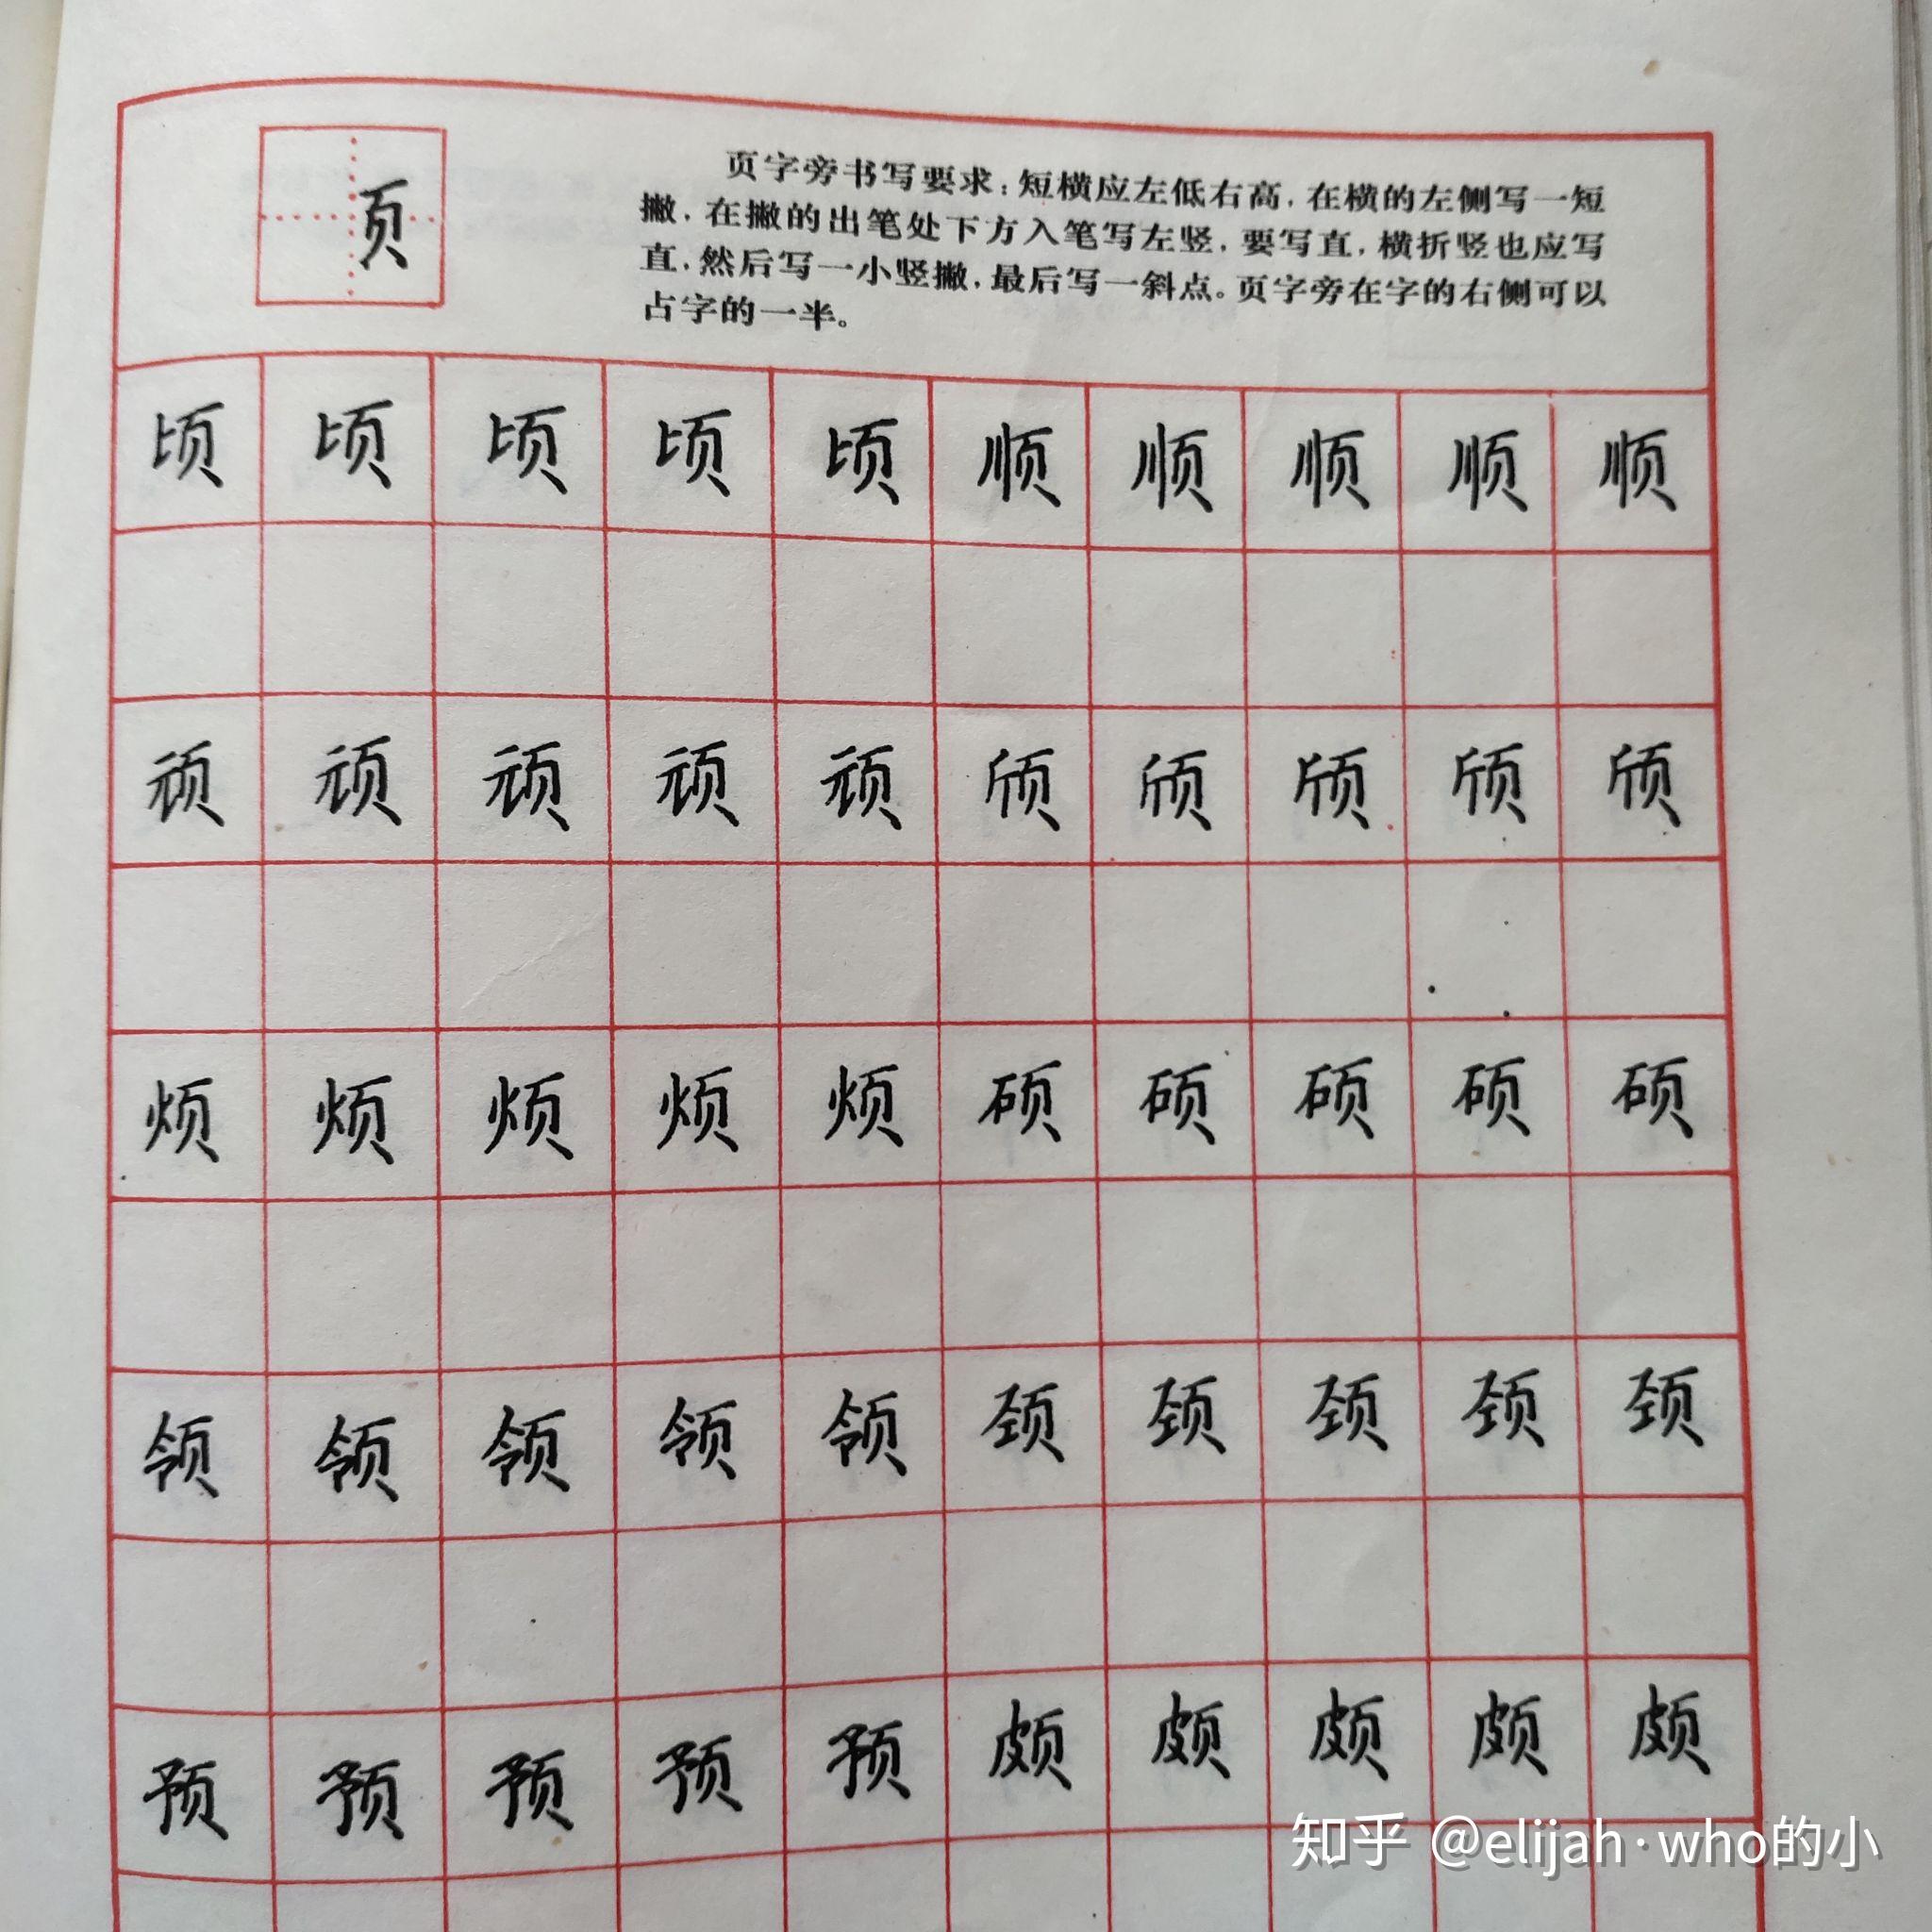 页
页字旁书写要求：短横应左低右高，在横的左侧写一短
撇，在撇的出笔处下方入笔写左竖，要写直，横折竖也应写
直，然后写一小竖撇，最后写一斜点。页字旁在字的右侧可以
占字的一半。
顷 顷 顷 顷 顷 顺 顺 顺 顺 顺
顽 顽 顽 顽 顽 颀 颀 颀 颀 颀
烦 烦 烦 烦 烦 硕 硕 硕 硕 硕
领 领 领 领 领 颈 颈 颈 颈 颈
预 预 预 预 预 颇 颇 颇 颇 颇
知乎 @elijah·who的小